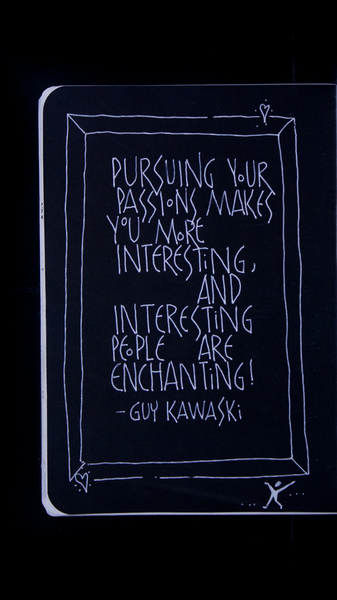 PURSUING YOUR
PASSIONS MAKES
YOU MORE
INTERESTING,
AND
INTERESTING
PEOPLE ARE
ENCHANTING!
- GUY KAWASKi